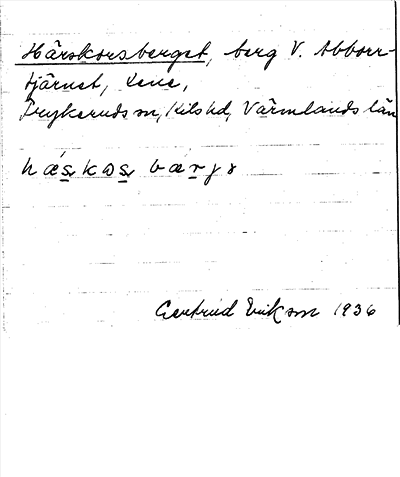 Härskorsberget, berg V. Abborr-
tjärnet, Lene,
Frykeruds sn, Kils hd, Värmlands län
hæskωs bærjɤ
Gertrud Eriksson 1936